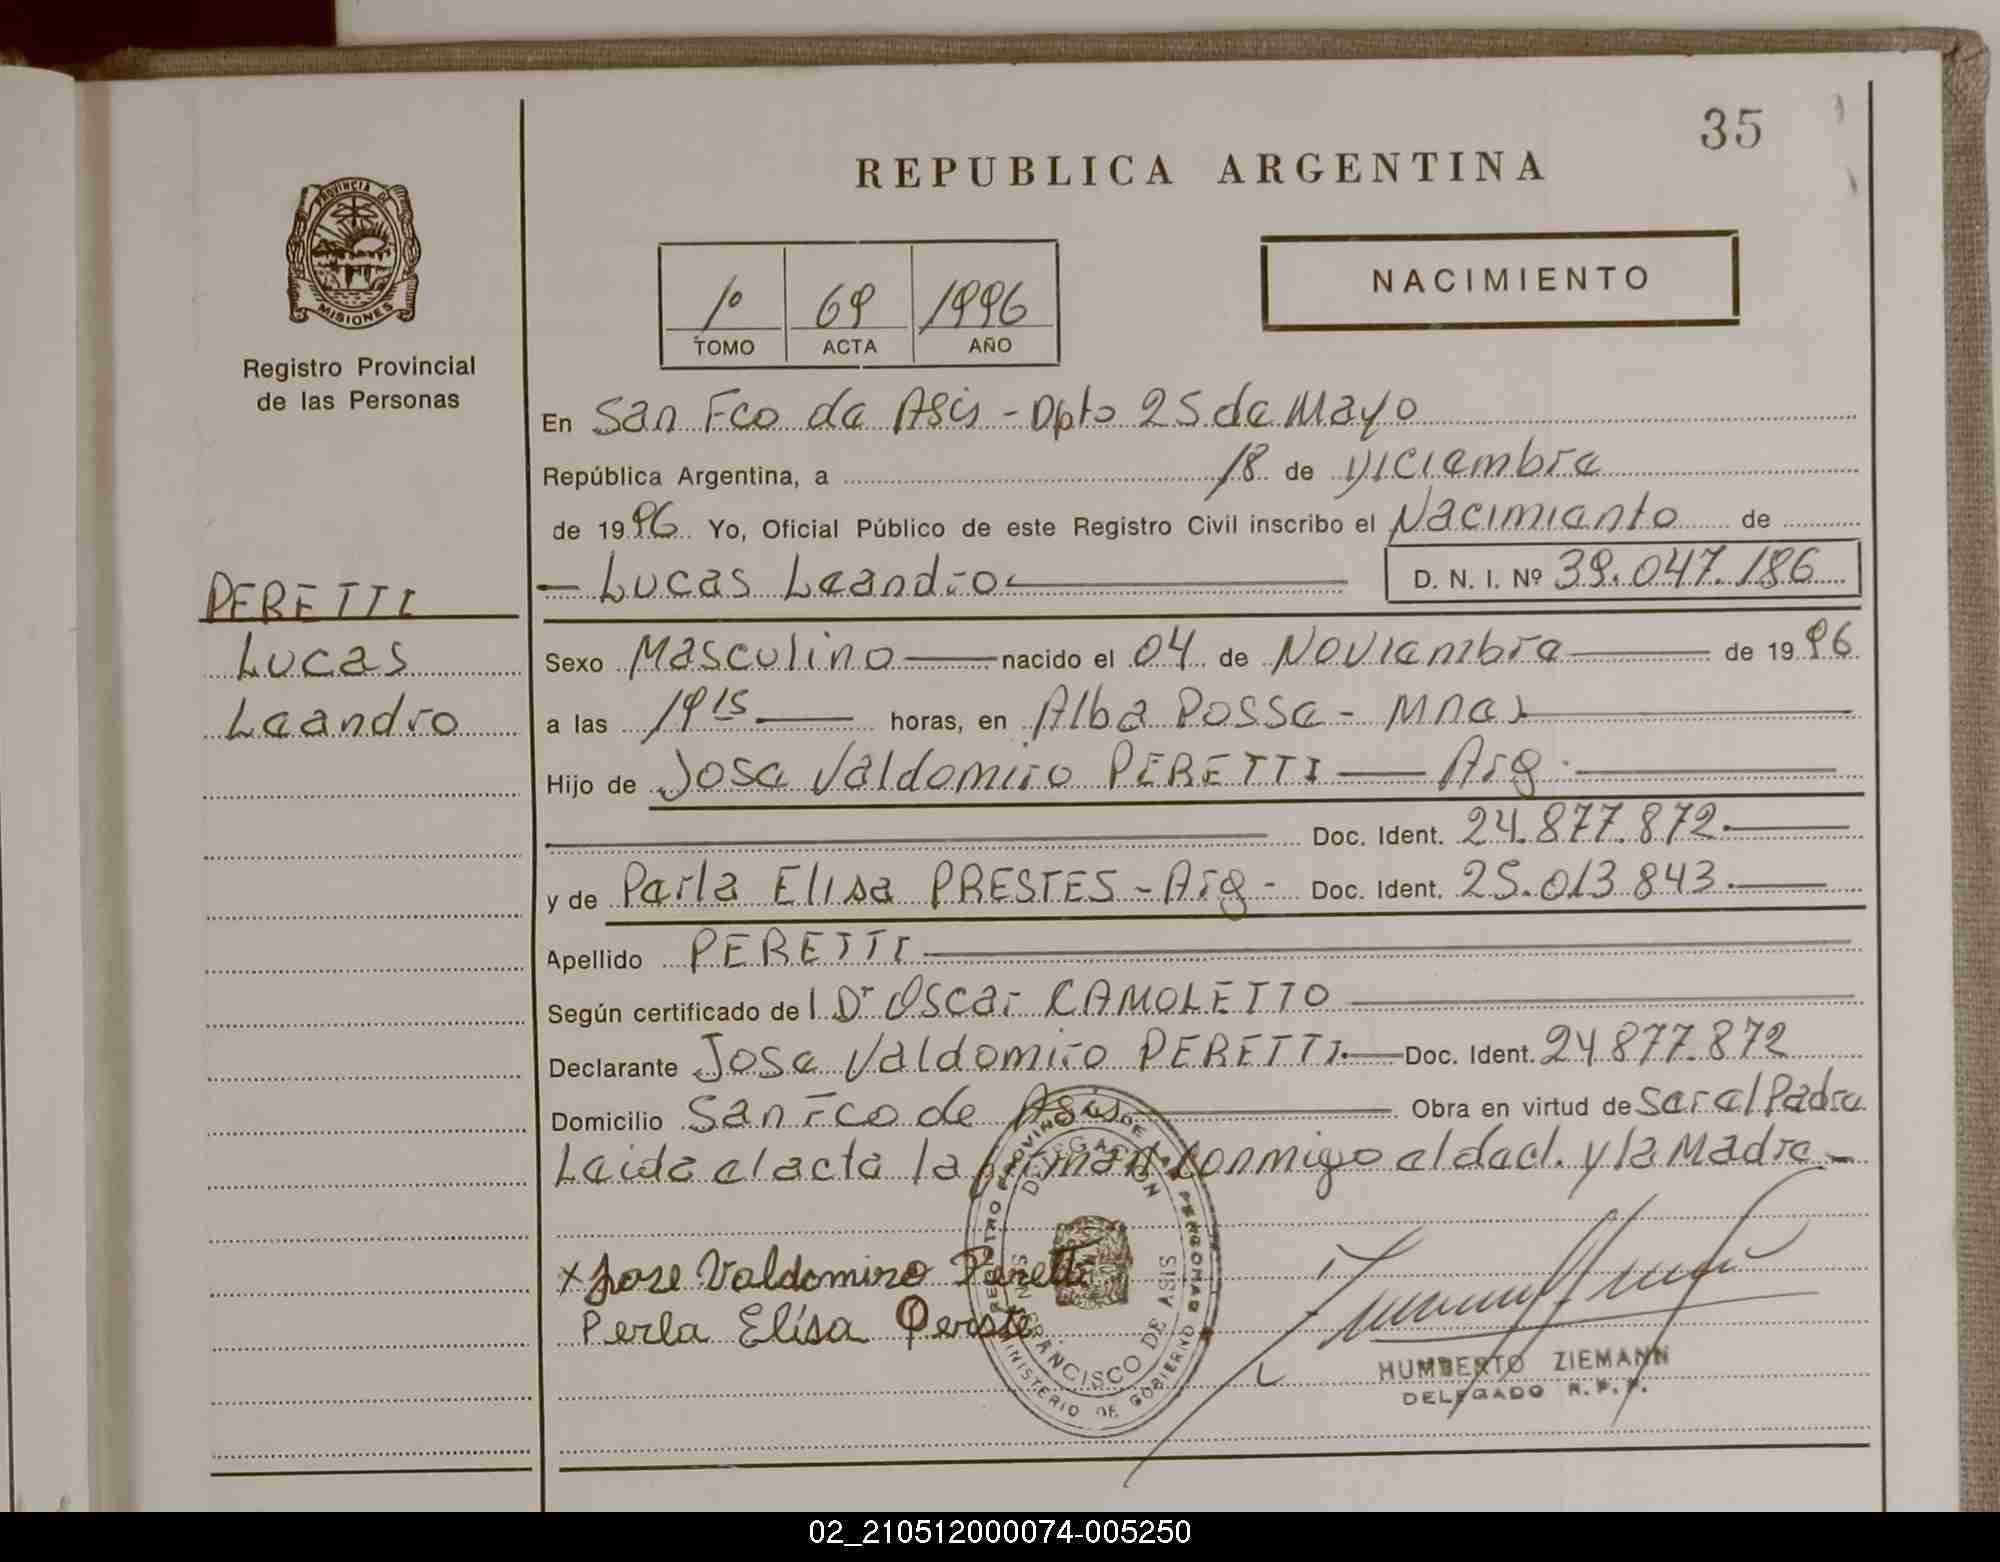 35
REPUBLICA ARGENTINA
PROVINCIA DE
MISIONES
Registro Provincial
de las Personas
1º 69 1996
TOMO ACTA AÑO
NACIMIENTO
En San Fco de Asis - Dpto 25 de Mayo
República Argentina, a 18 de Diciembre
de 1996 Yo, Oficial Público de este Registro Civil inscribo el Nacimiento de
- Lucas Leandro D. N. I. Nº 39.047.186
PERETTI
Lucas
Leandro
Sexo Masculino nacido el 04 de Noviembre de 1996
a las 19 15 horas, en Alba Posse - Mnes
Hijo de Jose Valdomiro PERETTI Arg.
Doc. Ident. 24.877.872
y de Perla Elisa PRESTES - Arg - Doc. Ident. 25.013 843
Apellido PERETTI
Según certificado del Dr Oscar CAMOLETTO
Declarante Jose Valdomiro PERETTI Doc. Ident. 24.877.872
Domicilio San Fco de Asis Obra en virtud de Ser el Padre
Leida el acta la firman conmigo el decl. y la Madre -
x Jose Valdomiro Peretti
Perla Elisa
REGISTRO PROVINCIAL DE PERSONAS
DELEGACION
SAN FRANCISCO DE ASIS
MINISTERIO DE GOBIERNO
HUMBERTO ZIEMANN
DELEGADO R.P.P.
02_210512000074-005250